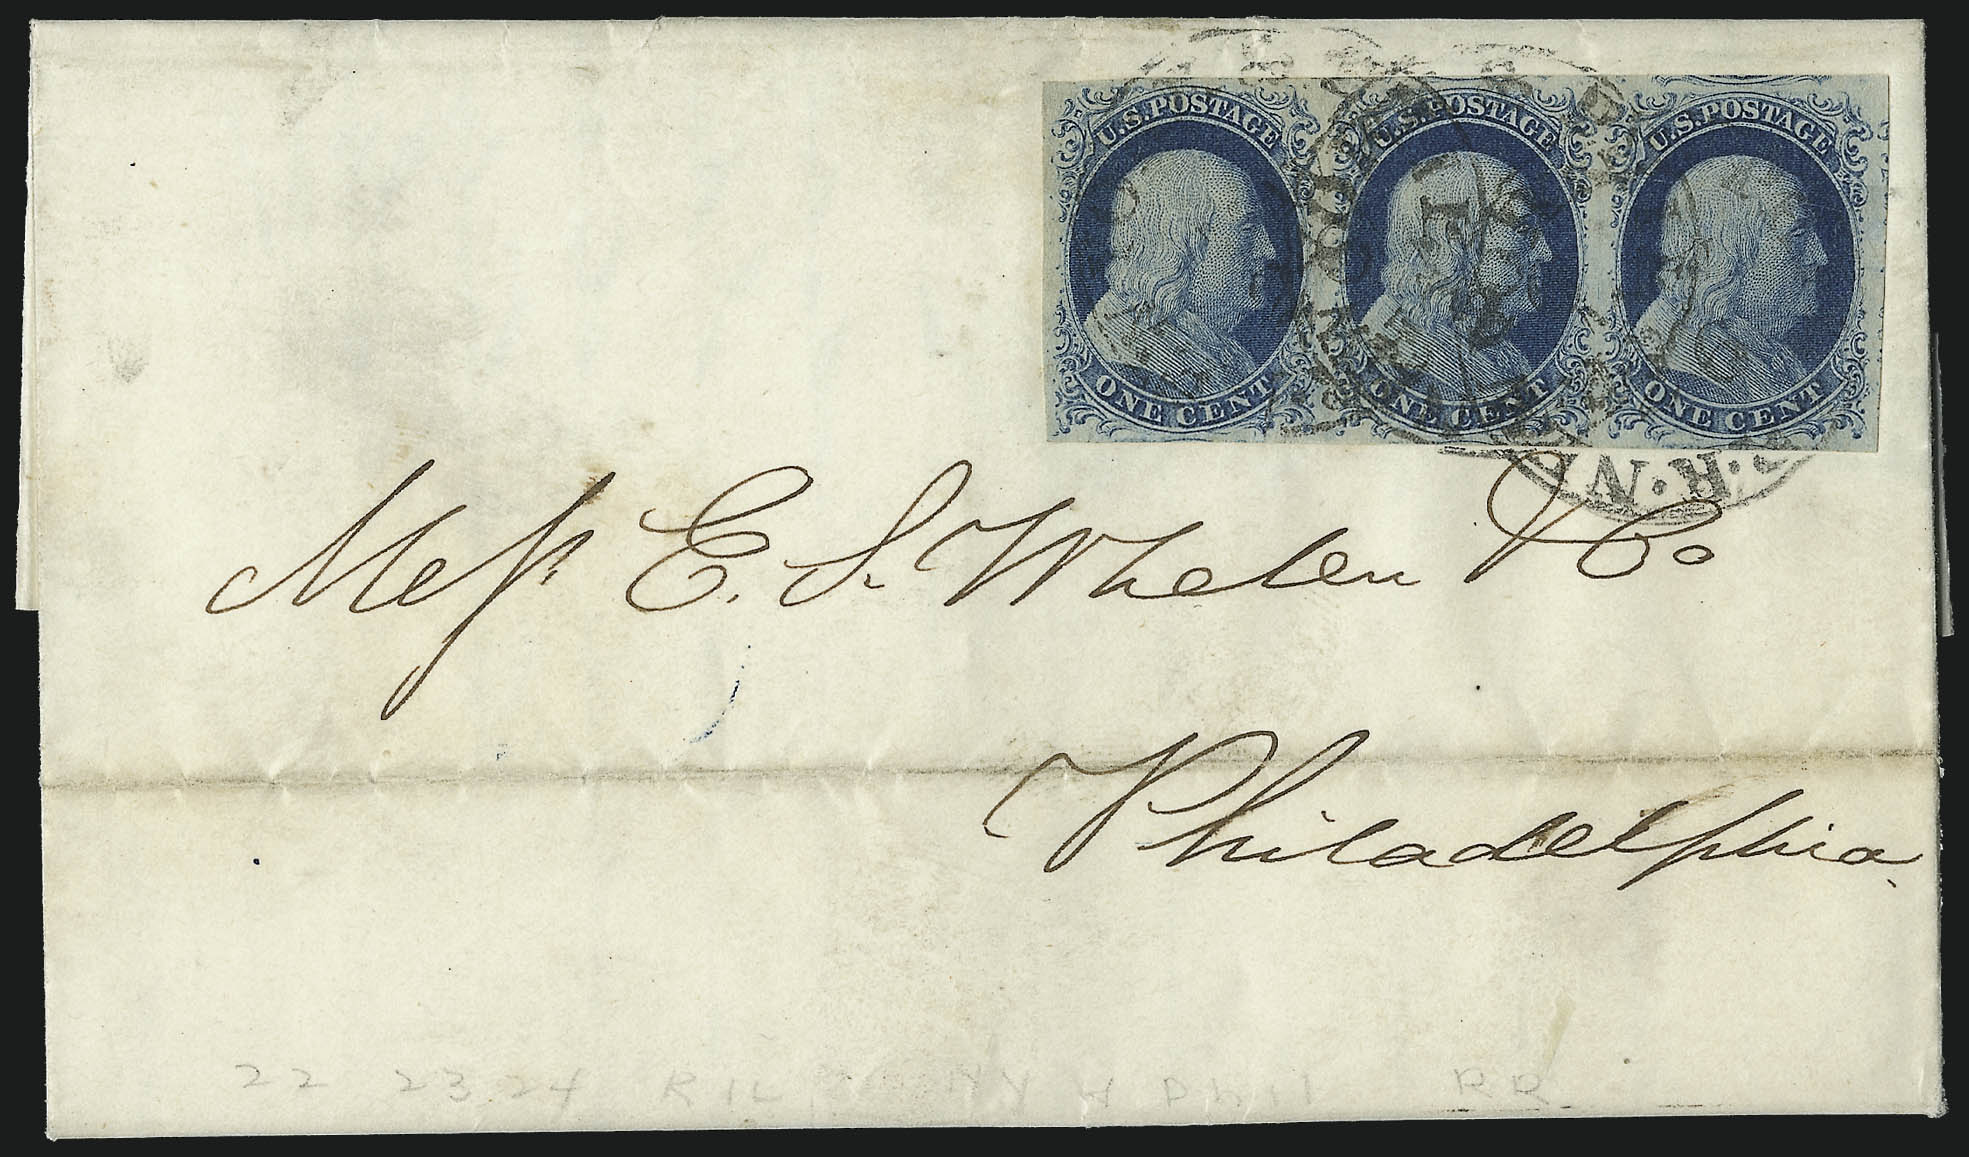 U.S. POSTAGE U.S. POSTAGE U.S. POSTAGE
ONE CENT ONE CENT ONE CENT
R. N
Mess. E. S. Whelen & Co
Philadelphia.
22 23 24 R1L NY Phil RR